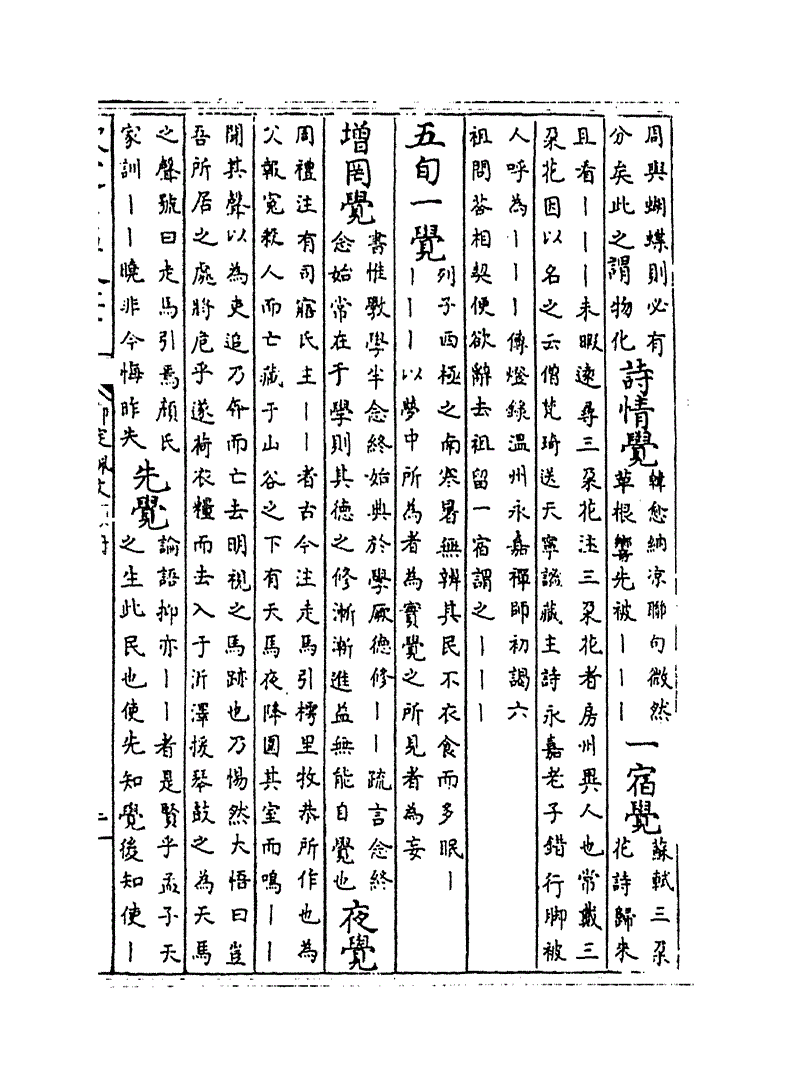 周與蝴蝶則必有
分矣此之謂物化
詩情覺
韓愈納涼聯句微然
草根響先被丨丨丨
一宿覺
蘇軾三朵
花詩歸來
且看丨丨丨未暇遠尋三朵花注三朵花者房州異人也常戴三
朵花因以名之云僧梵琦送天寧謐藏主詩永嘉老子錯行脚被
人呼為丨丨丨傳燈錄溫州永嘉禪師初謁六
祖問荅相契便欲辭去祖留一宿謂之丨丨丨
五旬一覺
列子西極之南寒暑無辨其民不衣食而多眠丨
丨丨丨以夢中所為者為實覺之所見者為妄
增罔覺
書惟斆學半念終始典於學厥德修丨丨疏言念終
念始常在于學則其德之修漸漸進益無能自覺也
夜覺
周禮注有司寤氏主丨丨者古今注走馬引樗里牧恭所作也為
父報寃殺人而亡藏于山谷之下有天馬夜降圍其室而鳴丨丨
聞其聲以為吏追乃奔而亡去明視之馬跡也乃惕然大悟曰豈
吾所居之處將危乎遂荷衣糧而去入于沂澤援琴鼓之為天馬
之聲號曰走馬引焉顏氏
家訓丨丨曉非今悔昨失
先覺
論語抑亦丨丨者是賢乎孟子天
之生此民也使先知覺後知使丨